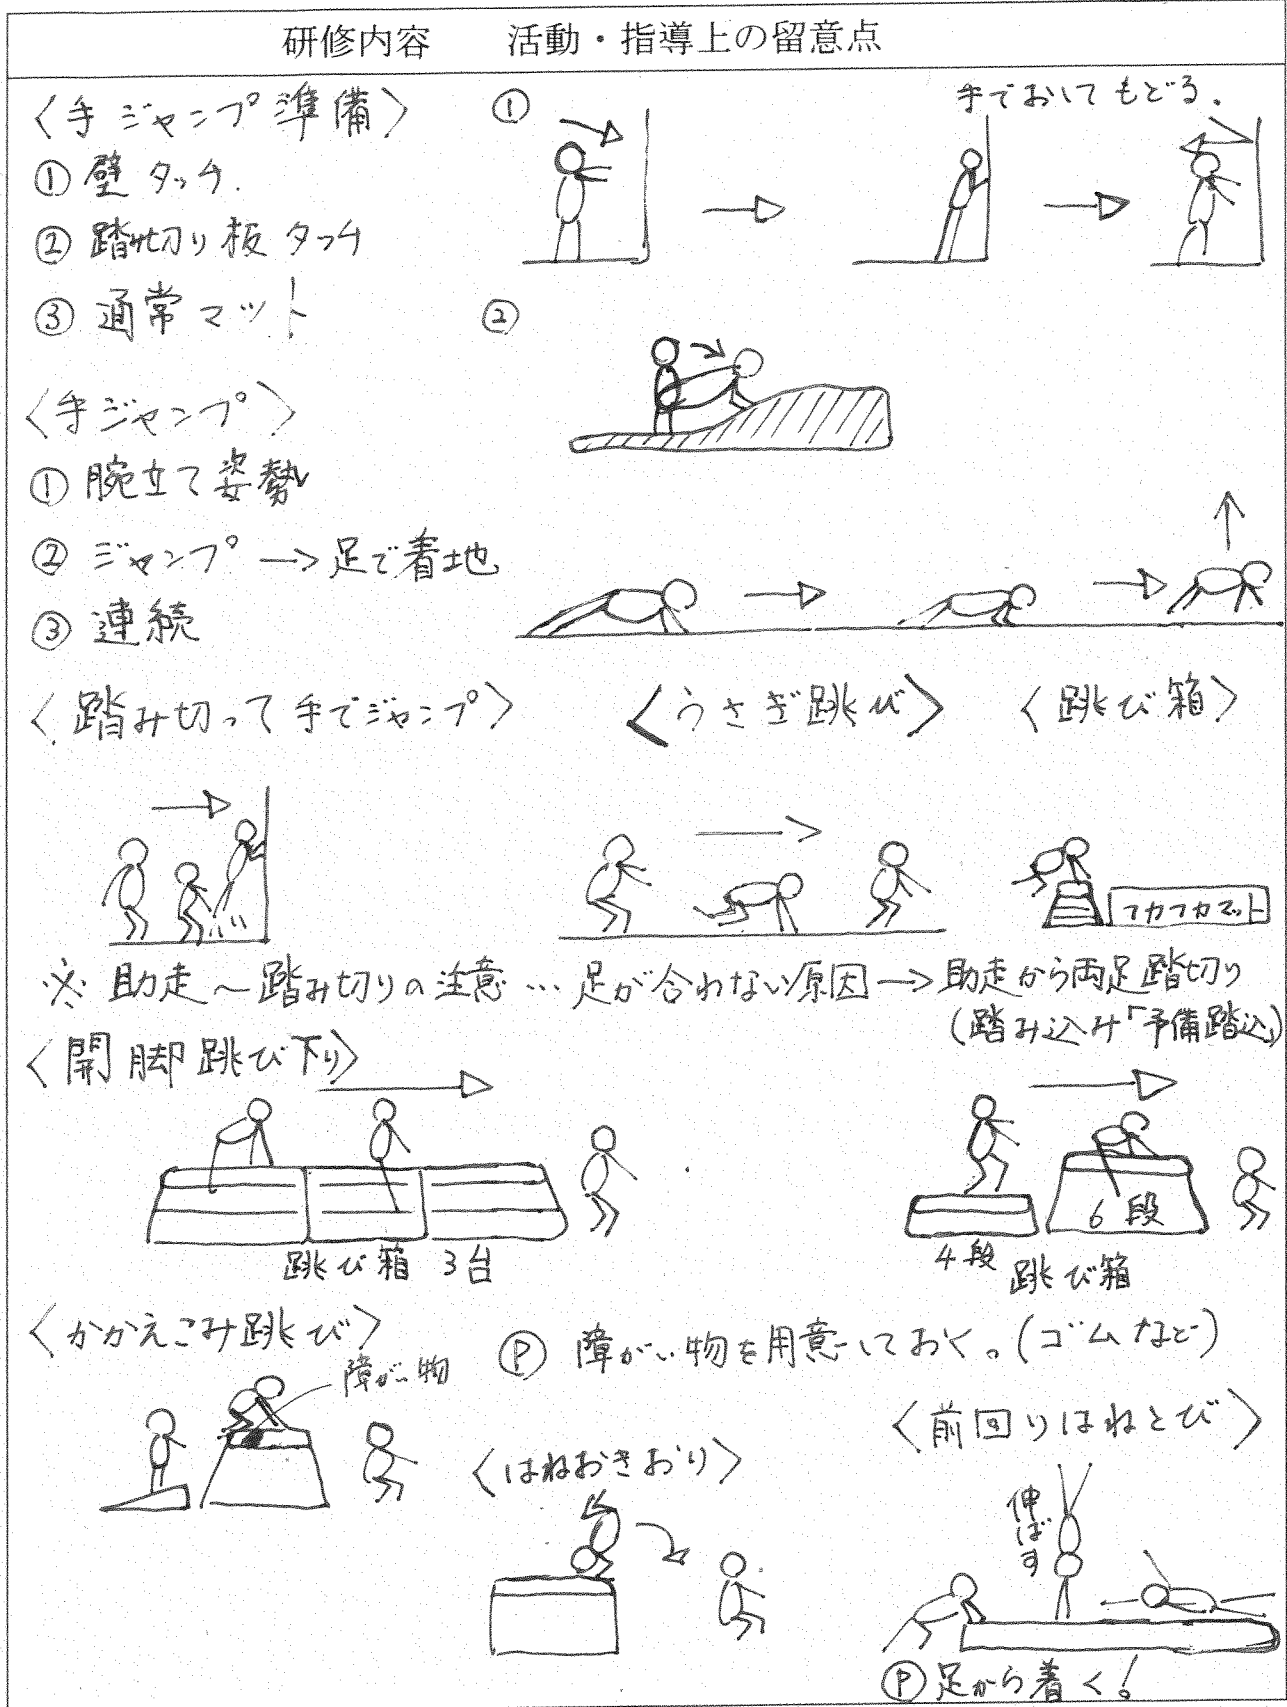 研修内容　　活動・指導上の留意点
〈手ジャンプ準備〉
① 壁タッチ.
② 踏み切り板タッチ
③ 通常マット
①
手でおしてもどる.
②
〈手ジャンプ〉
① 腕立て姿勢
② ジャンプ → 足で着地
③ 連続
〈踏み切って手でジャンプ〉
〈うさぎ跳び〉
〈跳び箱〉
フカフカマット
※ 助走〜踏み切りの注意…足が合わない原因→助走から両足踏切り
(踏み込み「予備踏込」)
〈開脚跳び下り〉
跳び箱 3台
6段
4段
跳び箱
〈かかえこみ跳び〉
障がい物
Ⓟ 障がい物を用意しておく。(ゴムなど)
〈はねおきおり〉
〈前回りはねとび〉
伸ばす
Ⓟ 足から着く!